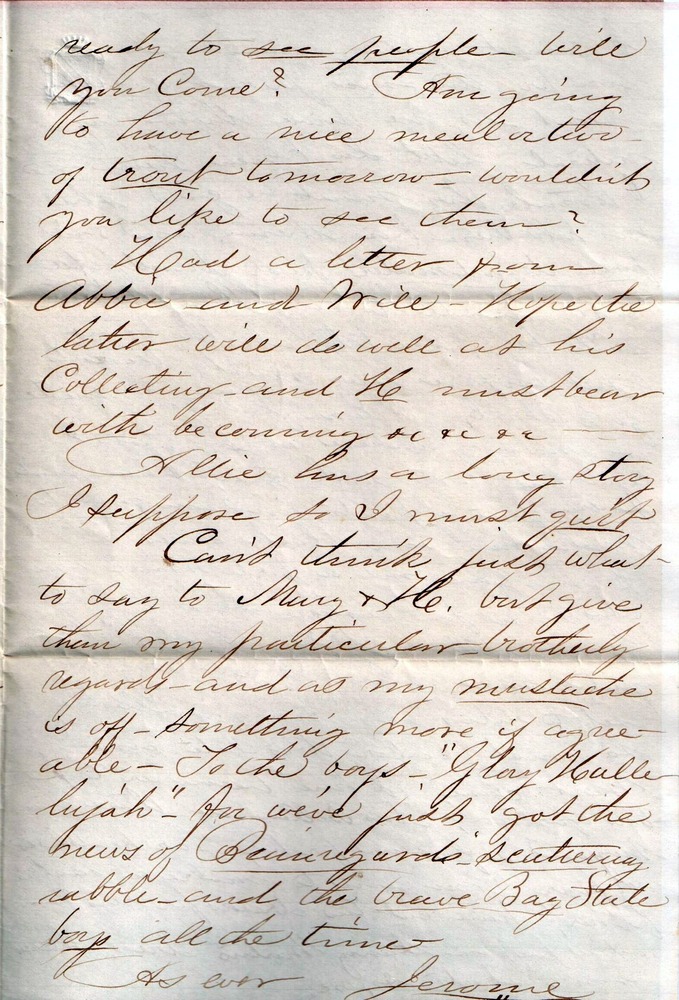 ready to see people – Will
you Come? Am going
to have a nice meal or two
of trout tomorrow – wouldn't
you like to see them?
Had a letter from
Abbie and Will – Hope the
latter will do well at his
Collecting – and H must bear
with becoming &c &c &c —
Allie has a long story
I suppose so I must quit
Can't think just what
to say to Mary & H. but give
them my particular brotherly
regards – and as my mustache
is off – something more if agree-
able – To the boys – "Glory Halle-
lujah" – for we've just got the
news of Beauregard's scattering
rabble – and the brave Bay State
boys all the time
As ever Jerome